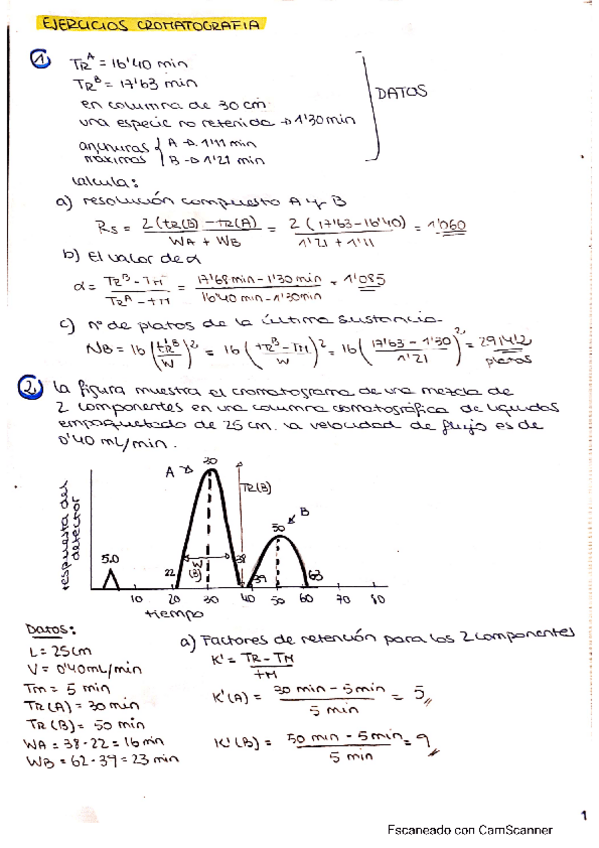 EJERCICIOS CROMATOGRAFIA
1. TR^A = 16'40 min
TR^B = 17'63 min
en columna de 30 cm
una especie no retenida → 1'30 min
anchuras máximas { A → 1'11 min
B → 1'21 min
DATOS
calcula:
a) resolución compuesto A y B
Rs = 2(tR(B) - tR(A)) / WA + WB = 2(17'63 - 16'40) / 1'21 + 1'11 = 1'060
b) El valor de α
α = TR^B - TM / TR^A - tM = 17'68 min - 1'30 min / 16'40 min - 1'30 min = 1'085
c) nº de platos de la última sustancia
NB = 16 (tR^B / W)^2 = 16 (tR^B - TM / W)^2 = 16 (17'63 - 1'30 / 1'21)^2 = 2914'2 platos
2. La figura muestra el cromatograma de una mezcla de
2 componentes en una columna cromatográfica de líquidos
empaquetado de 25 cm. La velocidad de flujo es de
0'40 mL/min.
respuesta del detector
A
30
TR(B)
B
50
5.0
22
W(B)
38
39
63
10 20 30 40 50 60 70 80
tiempo
Datos:
L = 25cm
V = 0'40 mL/min
Tm = 5 min
TR(A) = 30 min
TR(B) = 50 min
WA = 38 - 22 = 16 min
WB = 62 - 39 = 23 min
a) Factores de retención para los 2 componentes
K' = TR - TM / tM
K'(A) = 30 min - 5 min / 5 min = 5
K'(B) = 50 min - 5 min / 5 min = 9
1
Escaneado con CamScanner